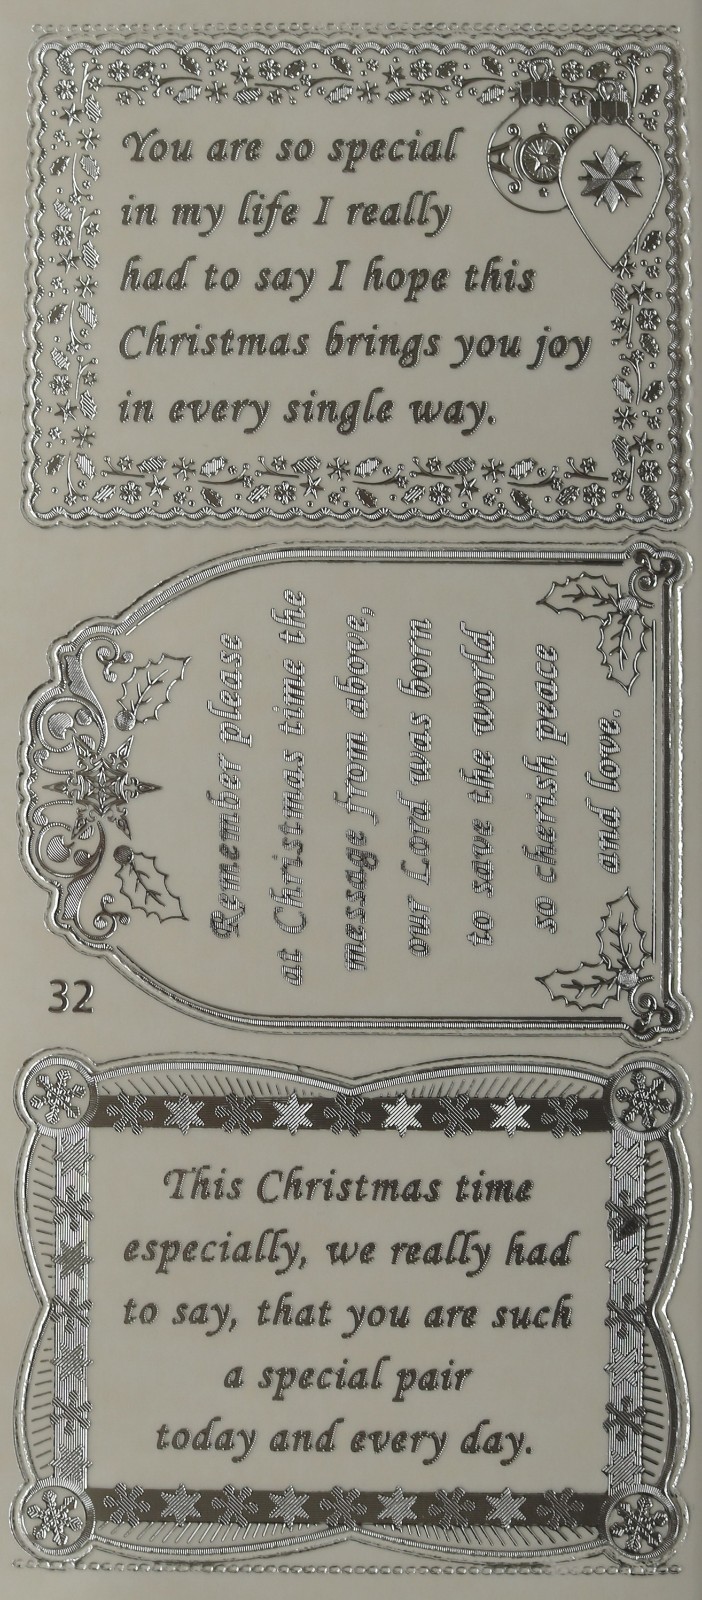 You are so special
in my life I really
had to say I hope this
Christmas brings you joy
in every single way.
Remember please
at Christmas time the
message from above,
our Lord was born
to save the world
so cherish peace
and love.
32
This Christmas time
especially, we really had
to say, that you are such
a special pair
today and every day.